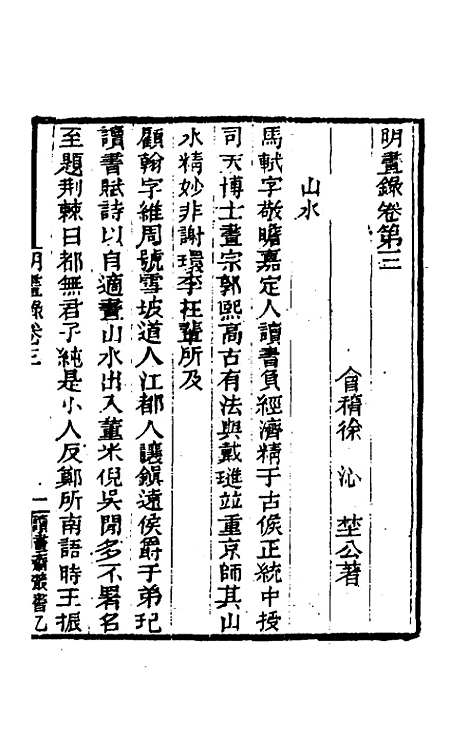 明畫錄卷第三
會稽徐沁埜公著
山水
馬軾字敬瞻嘉定人讀書負經濟精于古候正統中授
司天博士畫宗郭熙高古有法與戴璡並重京師其山
水精妙非謝環李在輩所及
顧翰字維周號雪坡道人江都人讓鎮遠侯爵于弟玘
讀書賦詩以自適畫山水出入董米倪吳閒多不署名
至題荆棘曰都無君子純是小人反鄭所南語時王振
明畫錄卷三
一
讀畫齋叢書己